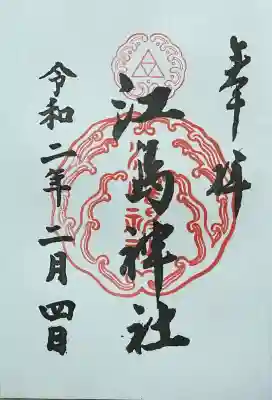 奉拝
江島神社
令和二年二月四日